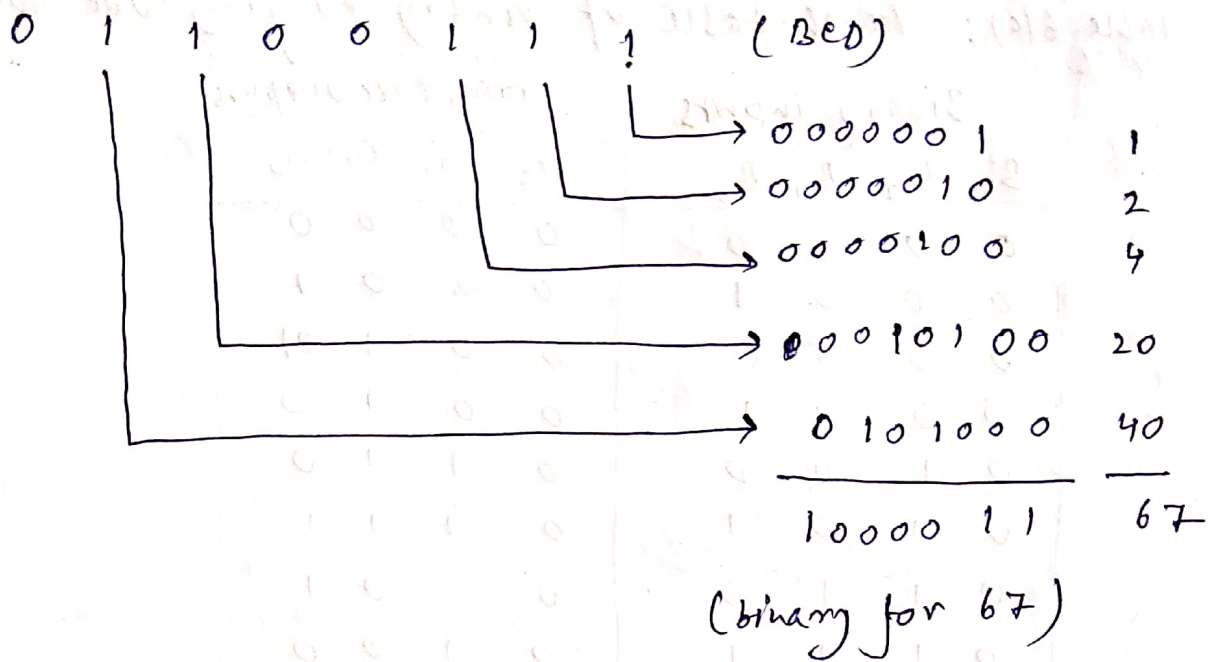 0 1 1 0 0 1 1 1 (BCD)
0 0 0 0 0 0 1 1
0 0 0 0 0 1 0 2
0 0 0 0 1 0 0 4
0 0 0 1 0 1 0 0 20
0 1 0 1 0 0 0 40
1 0 0 0 0 1 1 67
(binary for 67)